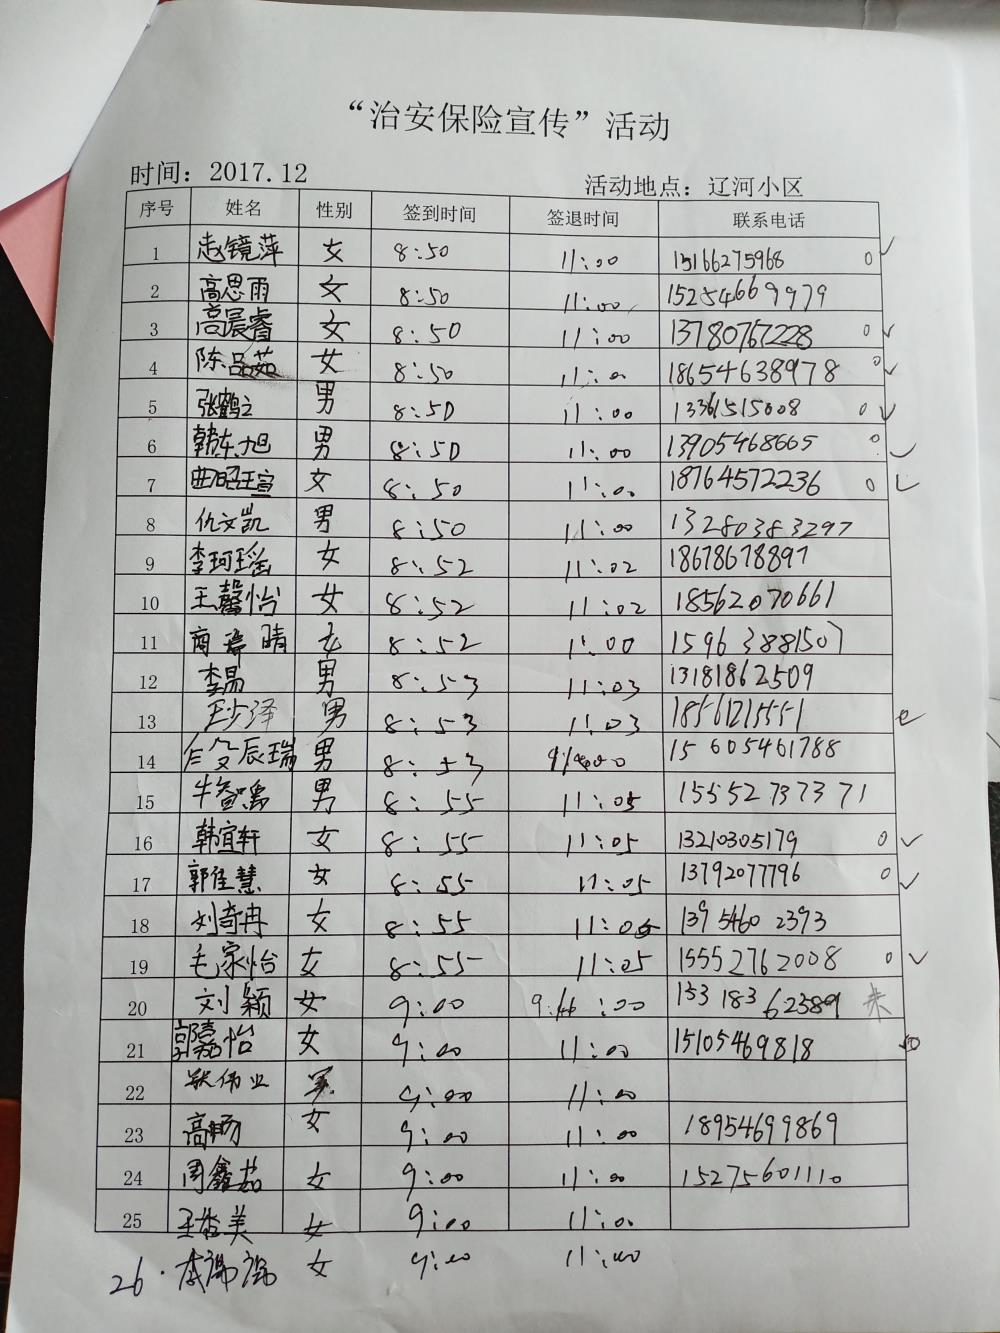 “治安保险宣传”活动
时间：2017.12 活动地点：辽河小区
序号 姓名 性别 签到时间 签退时间 联系电话
1 赵镜萍 女 8:50 11:00 15166275968 0 ✓
2 高思雨 女 8:50 11:00 15254669979
3 高晨睿 女 8:50 11:00 13780767228 0 ✓
4 陈品茹 女 8:50 11:00 18654638978 0 ✓
5 张鹤立 男 8:50 11:00 13361515008 0 ✓
6 韩东旭 男 8:50 11:00 13905468665 0 ✓
7 曲昭宣 女 8:50 11:00 18764572236 0 ✓
8 仇文凯 男 8:50 11:00 13280383297
9 李珂瑶 女 8:52 11:02 18678678897
10 王馨怡 女 8:52 11:02 18562070661
11 商 晴 女 8:52 11:00 15963881507
12 李昂 男 8:53 11:03 13181862509
13 泽 男 8:53 11:03 18561215551
14 辰瑞 男 8:53 15605461788
15 牛 男 8:55 11:05 15552737371
16 韩宜轩 女 8:55 11:05 13210305179 0 ✓
17 郭佳慧 女 8:55 11:05 13792077796 0 ✓
18 刘奇冉 女 8:55 11:05 13954602393
19 毛家怡 女 8:55 11:05 15552762008 0 ✓
20 刘颖 女 9:00 :00 15318362389
21 郭嘉怡 女 9:00 11:00 15105469818
22 伟业 男 9:00 11:00
23 高畅 女 9:00 11:00 18954699869
24 周鑫茹 女 9:00 11:00 15275601110
25 王 美 女 9:00 11:00
26. 李 女 9:00 11:00